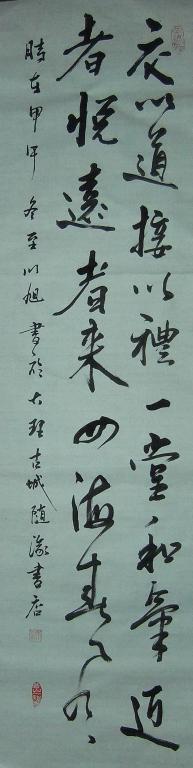 交以道接以禮一堂和氣近
者悅遠者來四海春風
時在甲午冬至以旭書於大理古城隨緣書店